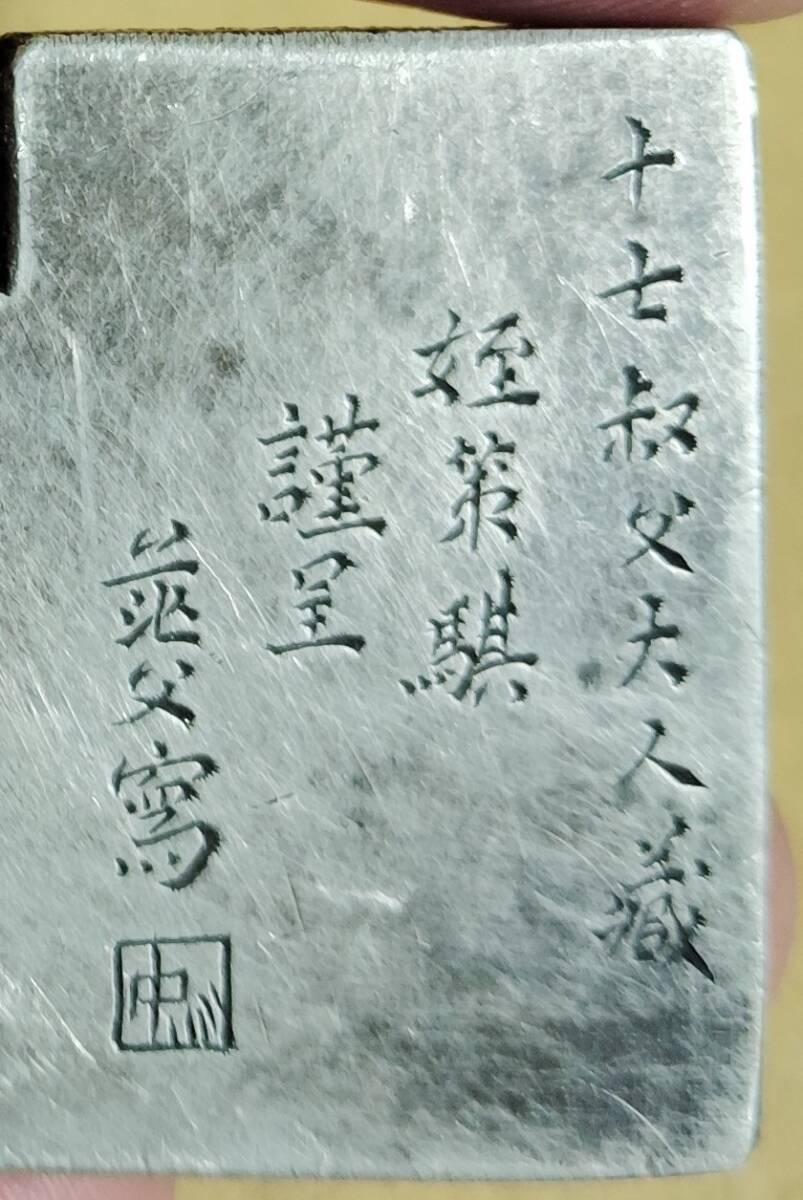 十七叔父大人藏
姪策騏
謹呈
茫父寫